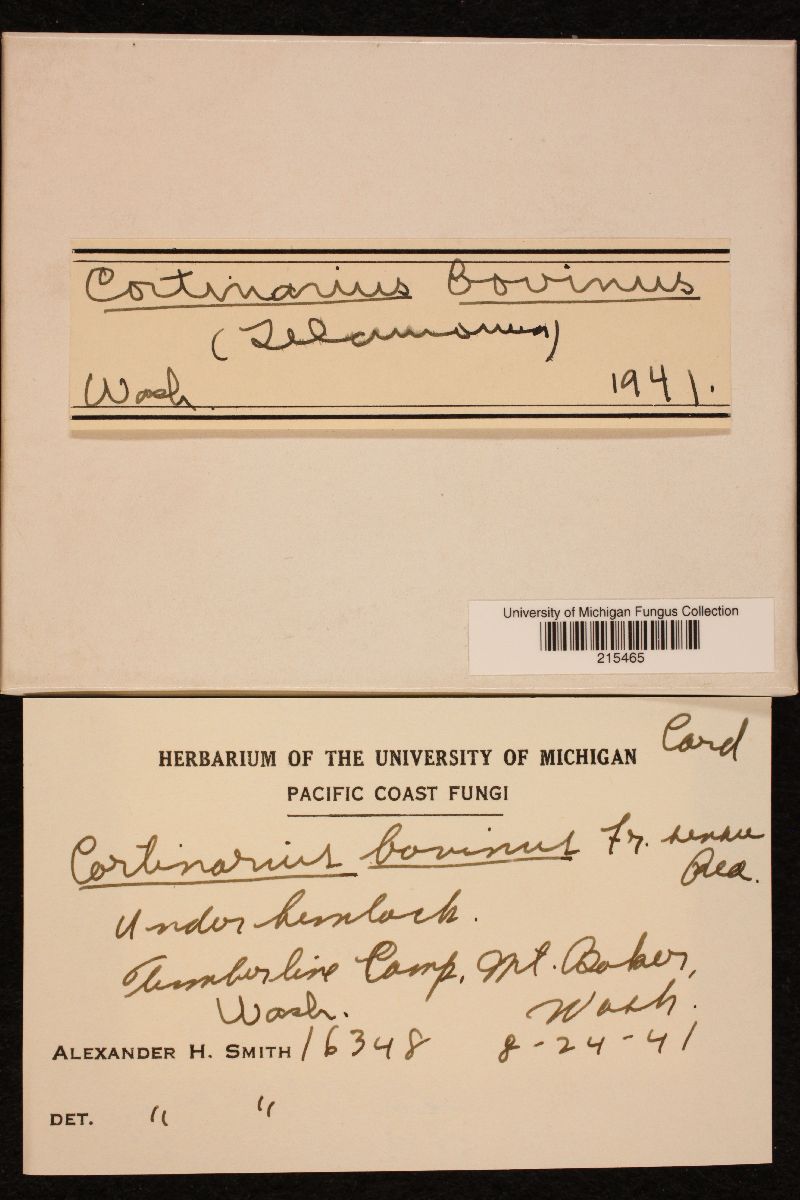 Cortinarius bovinus
(Telamonia)
Wash. 1941.
University of Michigan Fungus Collection
215465
Card
HERBARIUM OF THE UNIVERSITY OF MICHIGAN
PACIFIC COAST FUNGI
Cortinarius bovinus Fr. sensu
Rea.
Under hemlock.
Timberline Camp, Mt. Baker,
Wash. Wash.
ALEXANDER H. SMITH 16348 8-24-41
DET. " "